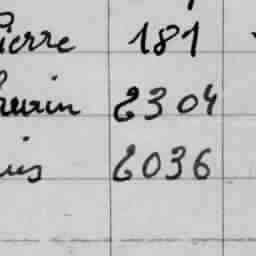 ierre 181
urin 2304
uis 2036